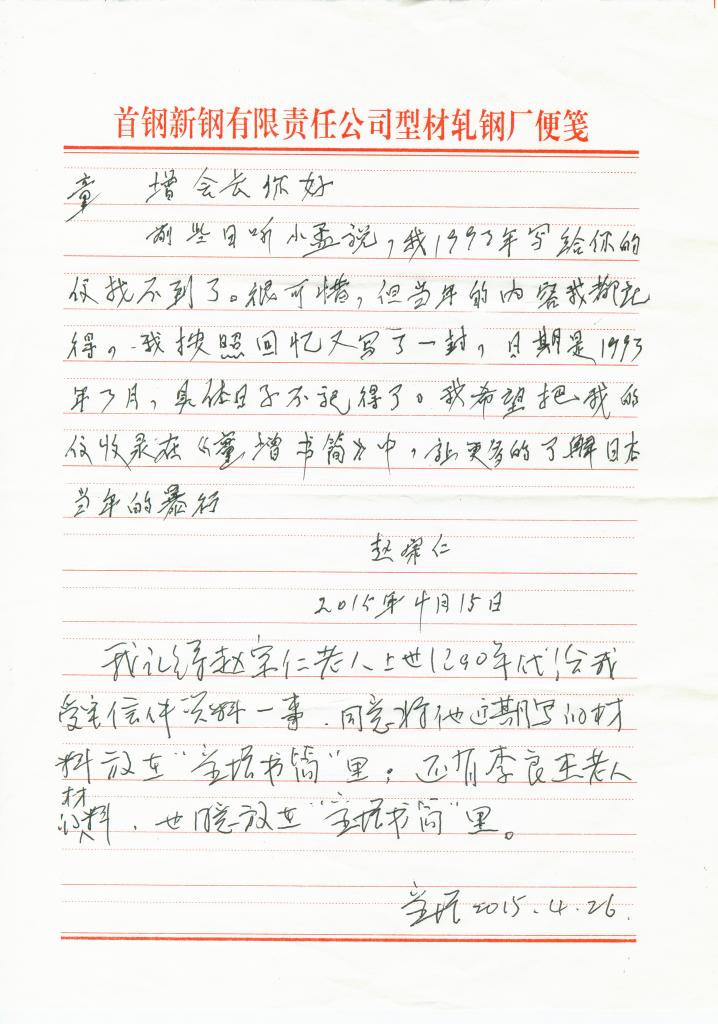 首钢新钢有限责任公司型材轧钢厂便笺
童 增会长你好
前些日听小孟说，我1993年写给你的
信找不到了。很可惜，但当年的内容我都记
得，我按照回忆又写了一封，日期是1993
年3月，具体日子不记得了。我希望把我的
信收录在《童增书简》中，让更多的了解日本
当年的暴行
赵宗仁
2015年4月15日
我记得赵宗仁老人上世1990年代给我
受害信件资料一事，同意将他近期写的材
料放在“童增书简”里；还有李良杰老人
的材料，也同意放在“童增书简”里。
童增2015.4.26.